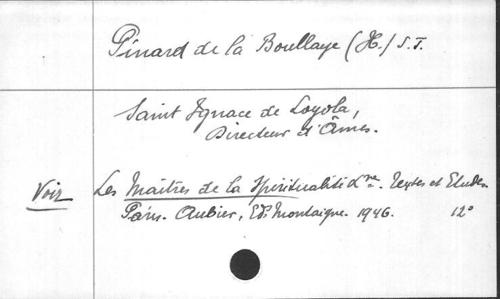 Pinard de la Boullaye (H.) S.J.
Saint Ignace de Loyola,
Directeur d'Âmes.
Voir Les Maîtres de la Spiritualité Chne. Textes et Etudes.
Paris. Aubier, Ed. Montaigne. 1946. 12°